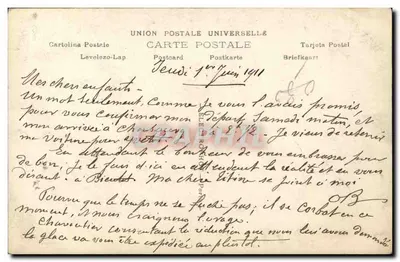 UNION POSTALE UNIVERSELLE
CARTE POSTALE
Cartolina Postale Tarjeta Postal
Levelezo-Lap Postcard Postkarte Briefkaart
Jeudi 1er Juin 1911
Mes chers enfants.
Un mot seulement, comme je vous l'avais promis,
pour vous confirmer mon départ Samedi matin, et
mon arrivée à Je viens de retenir
ma voiture pour
En attendant le bonheur de vous embrasser pour
de bon, je le fais d'ici en attendant la réalité et en vous
disant : à Bientôt. Ma chère se joint à moi
Pourvu que le temps ne se fiche pas ; il se en ce
moment, et nous craignons l'orage.
Charpentier consentant la réduction que nous lui avons demandée
la glace va vous être expédiée au plus tôt.